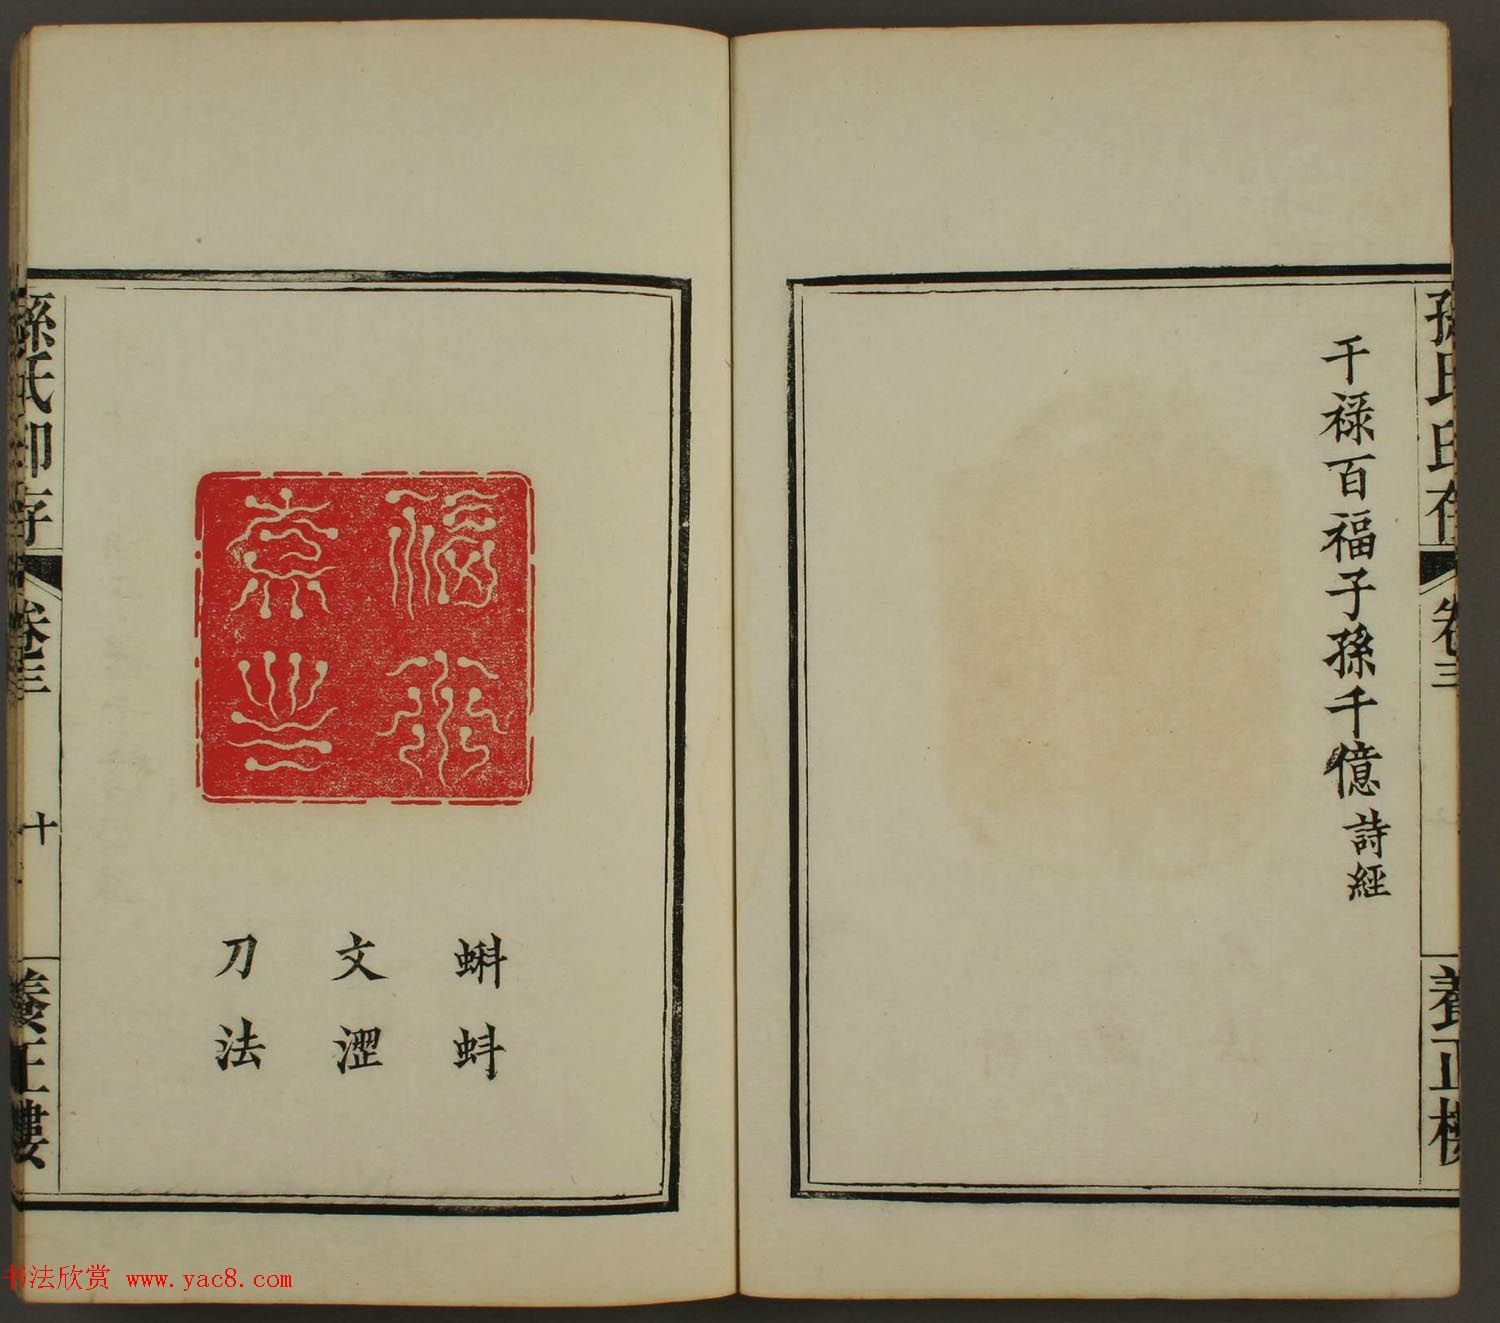 孫氏印存 卷三 養正樓
干禄百福子孫千億 詩經
蝌蚪
文澀
刀法
孫氏印存 卷三 十 養正樓
书法欣赏 www.yac8.com